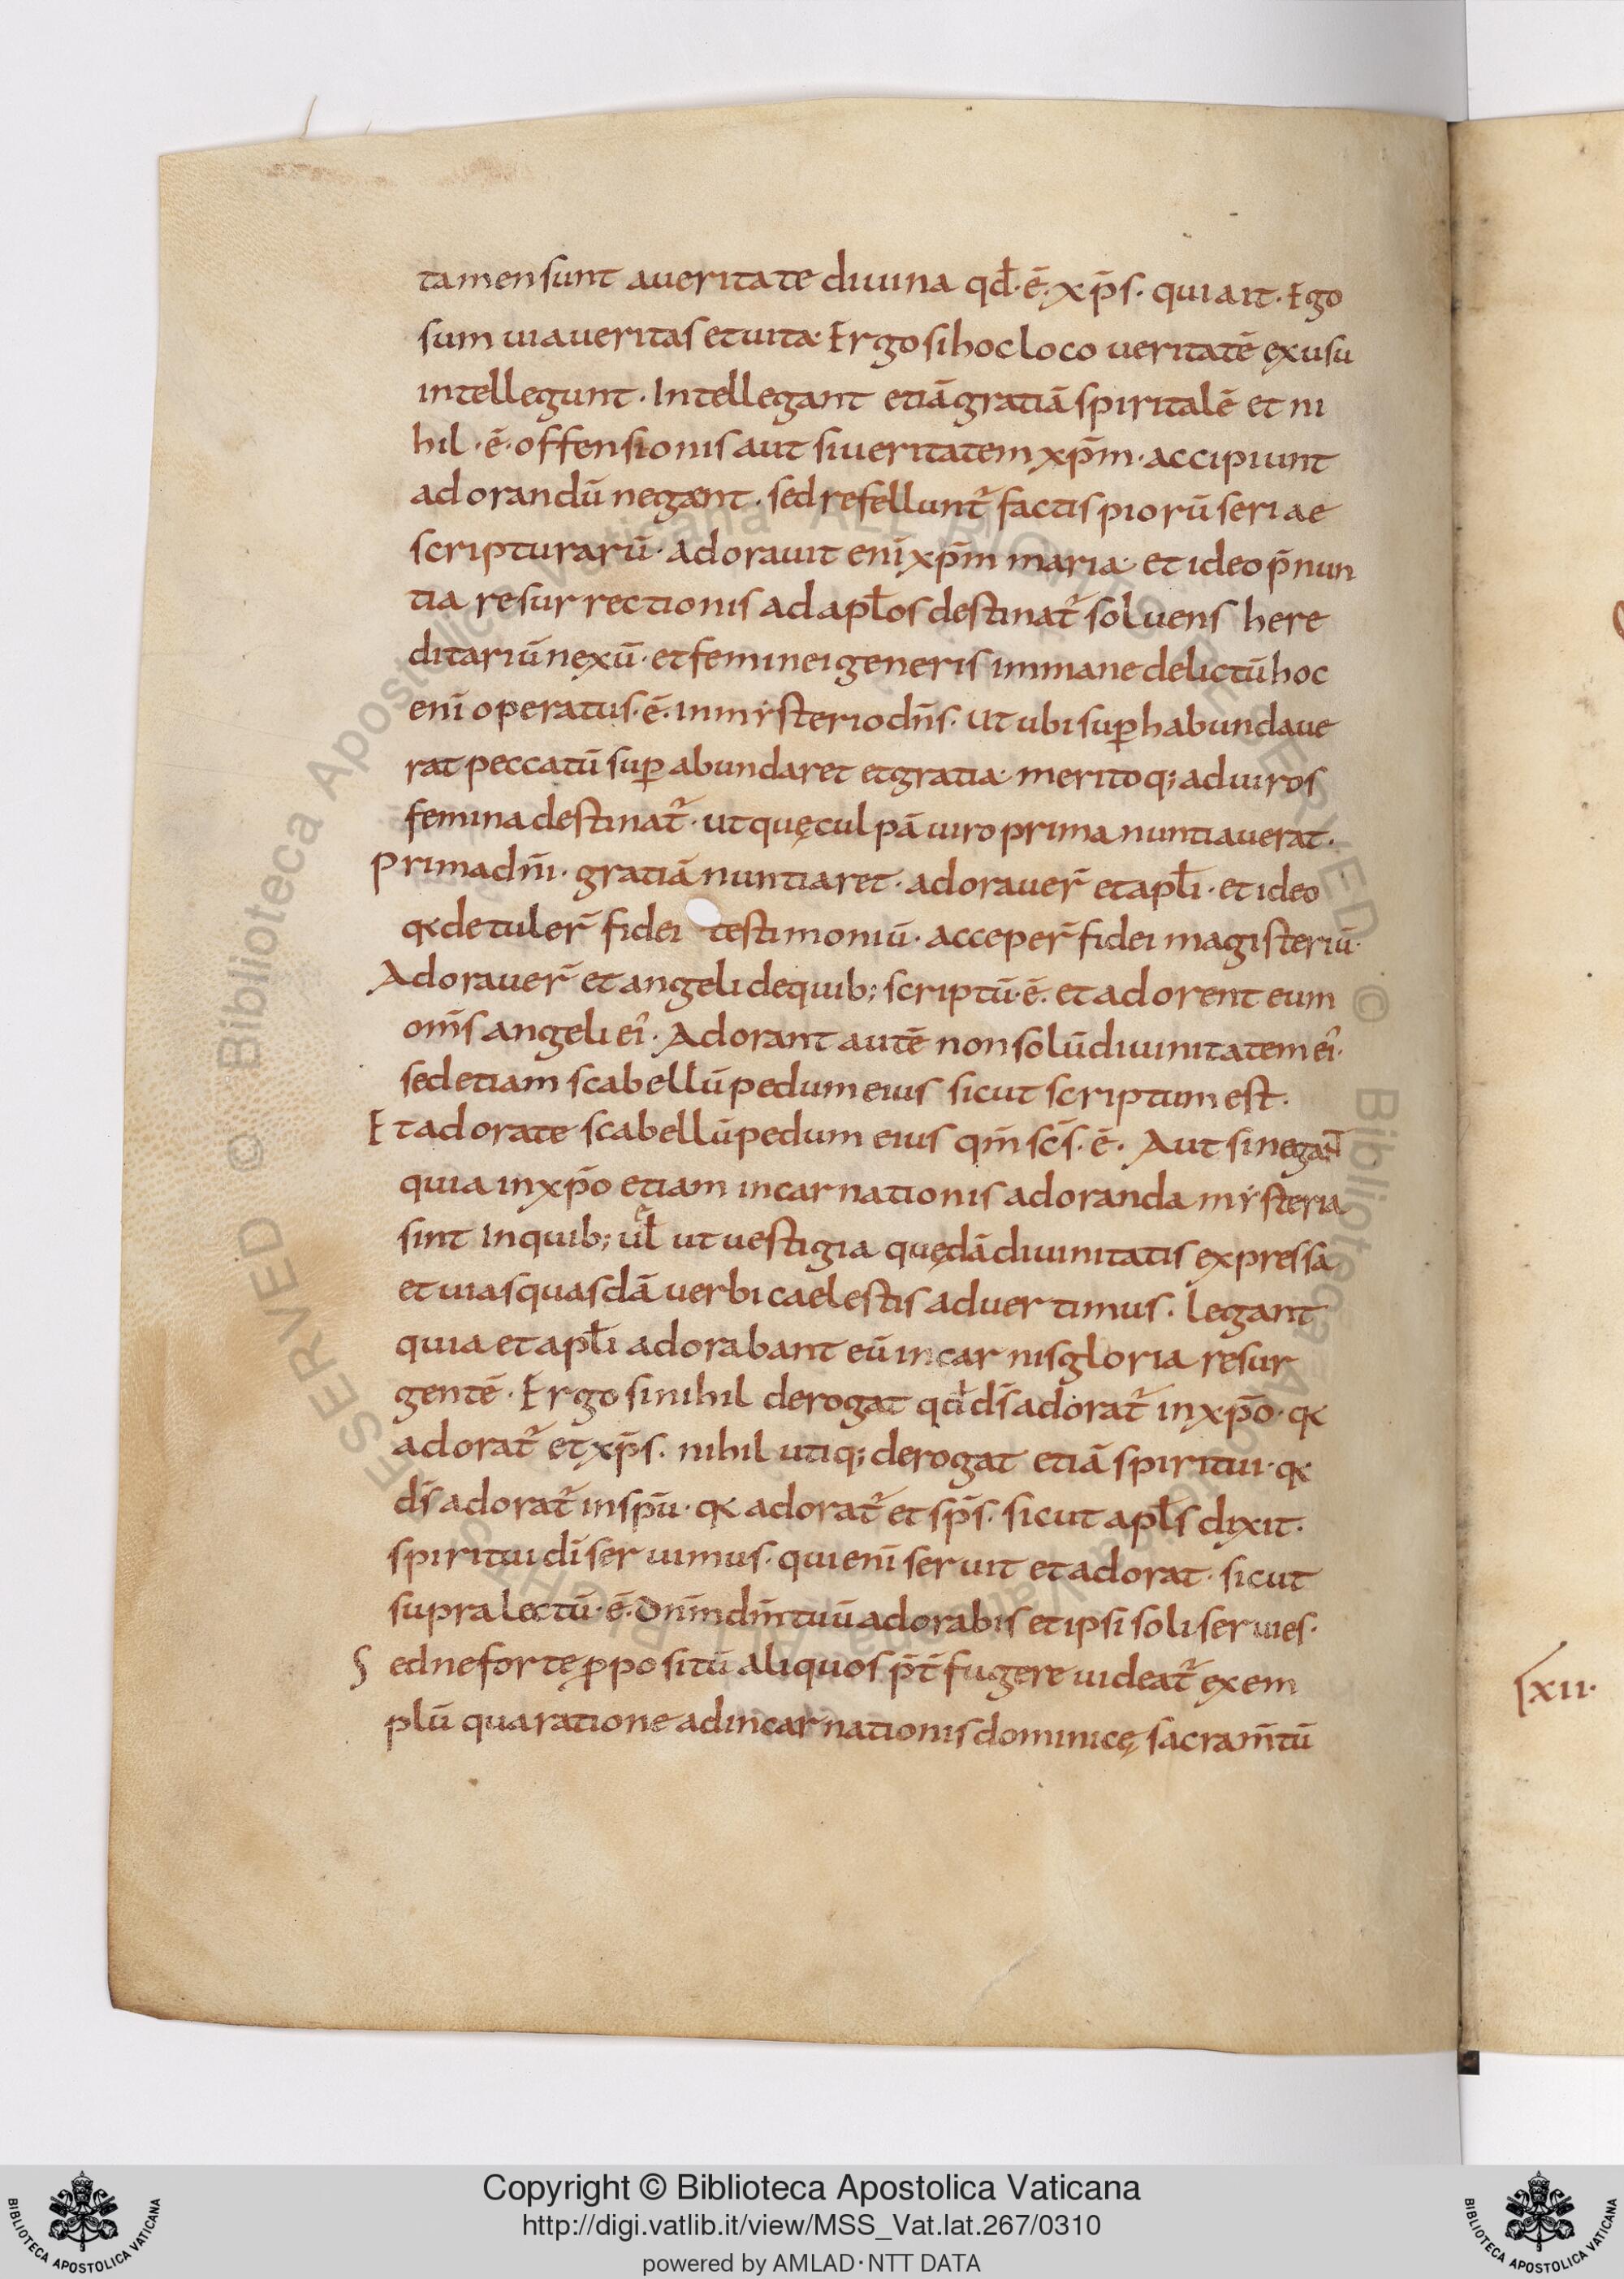 tamen sunt a ueritate diuina qđ·ē·xp̄s· qui ait· Ego
sum uia ueritas et uita· Ergo si hoc loco ueritatē ex usu
intellegunt· Intellegant etiā gratiā spiritalē et ni
hil·ē·offensionis aut si ueritatem xp̄m· accipiunt
adorandū negant· sed refellunt᷑ factis piorū seriae
scripturarū· adorauit enī xp̄m maria· et ideo p̄nun
tia resurrectionis ad apłos destinat᷑ soluens here
ditariū nexū· et feminei generis immane delictū hoc
enī operatus·ē· in mẏsterio dn̄s· ut ubi suꝑhabundaue
rat peccatū suꝑabundaret et gratia· meritoq; ad uiros
femina destinat᷑· ut quę culpā uiro prima nuntiauerat·
Prima dn̄i· gratiā nuntiaret· adorauer̄ et apłi· et ideo
qꝛ detuler̄ fidei testimoniū· acceper̄ fidei magisteriū·
Adorauer̄ et angeli de quib; scriptū·ē· et adorent eum
om̄s angeli ei᷑· Adorant autē non solū diuinitatem ei᷑·
sed etiam scabellū pedum eius sicut scriptum est·
Et adorate scabellū pedum eius qm̄ sc̄s·ē· Aut si negant
quia in xp̄o etiam incarnationis adoranda mẏsteria
sint In quib; uł ut uestigia quędā diuinitatis expressa
et uias quasdā uerbi caelestis aduertimus· legant
quia et apłi adorabant eū in carnis gloria resur
gentē· Ergo si nihil derogat qđ ds̄ adorat᷑ in xp̄o· qꝛ
adorat᷑ et xp̄s· nihil utiq; derogat etiā spiritui· qꝛ
ds̄ adorat᷑ in spū· qꝛ adorat᷑ et sp̄s· sicut apłs dixit·
spiritui dī seruimus· qui enī seruit et adorat· sicut
supra lectū·ē· Dn̄m dm̄ tuū adorabis et ipsi soli seruies·
Sed ne forte ꝓpositū aliquos p̄t̄ fugere uideat᷑ exem
plū qua ratione ad incarnationis dominicę sacram̄tū
lxii·
Copyright © Biblioteca Apostolica Vaticana
http://digi.vatlib.it/view/MSS_Vat.lat.267/0310
powered by AMLAD·NTT DATA
BIBLIOTECA APOSTOLICA VATICANA
BIBLIOTECA APOSTOLICA VATICANA